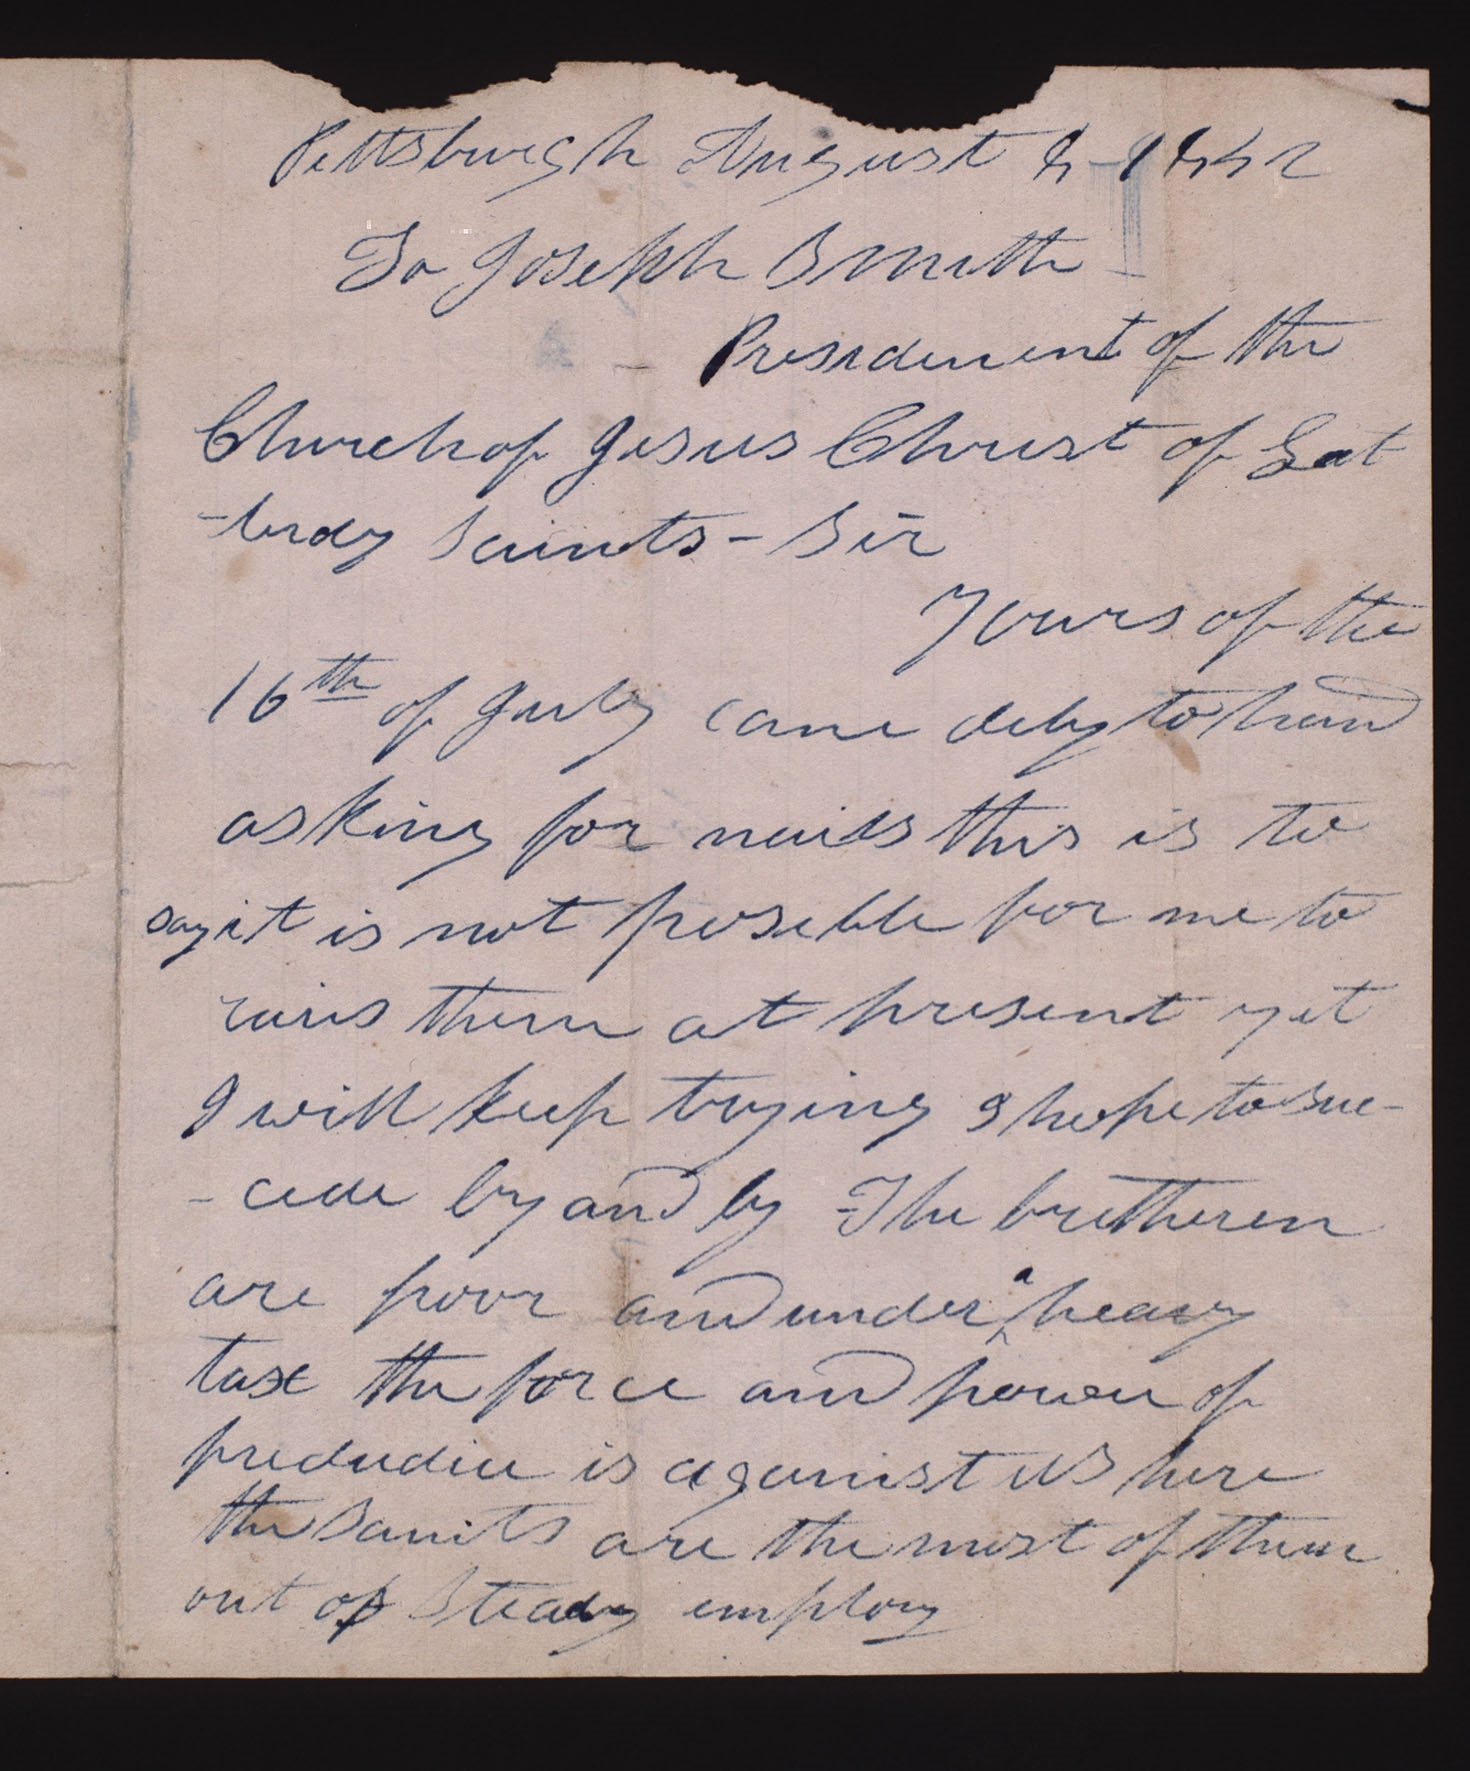 Pittsburgh August 4 1842
To Joseph Smith
Presidenent of the
Church of Jesus Christ of Lat
-terday Saints - Sir
Yours of the
16th of July came duly to hand
asking for nails this is to
say it is not posible for me to
rais them at present yet
I will keep trying I hope to suc-
-cede by and by - The bretheren
are poor and under a heavy
tax the force and power of
predudice is against us here
the Saints are the most of them
out of Steady employ